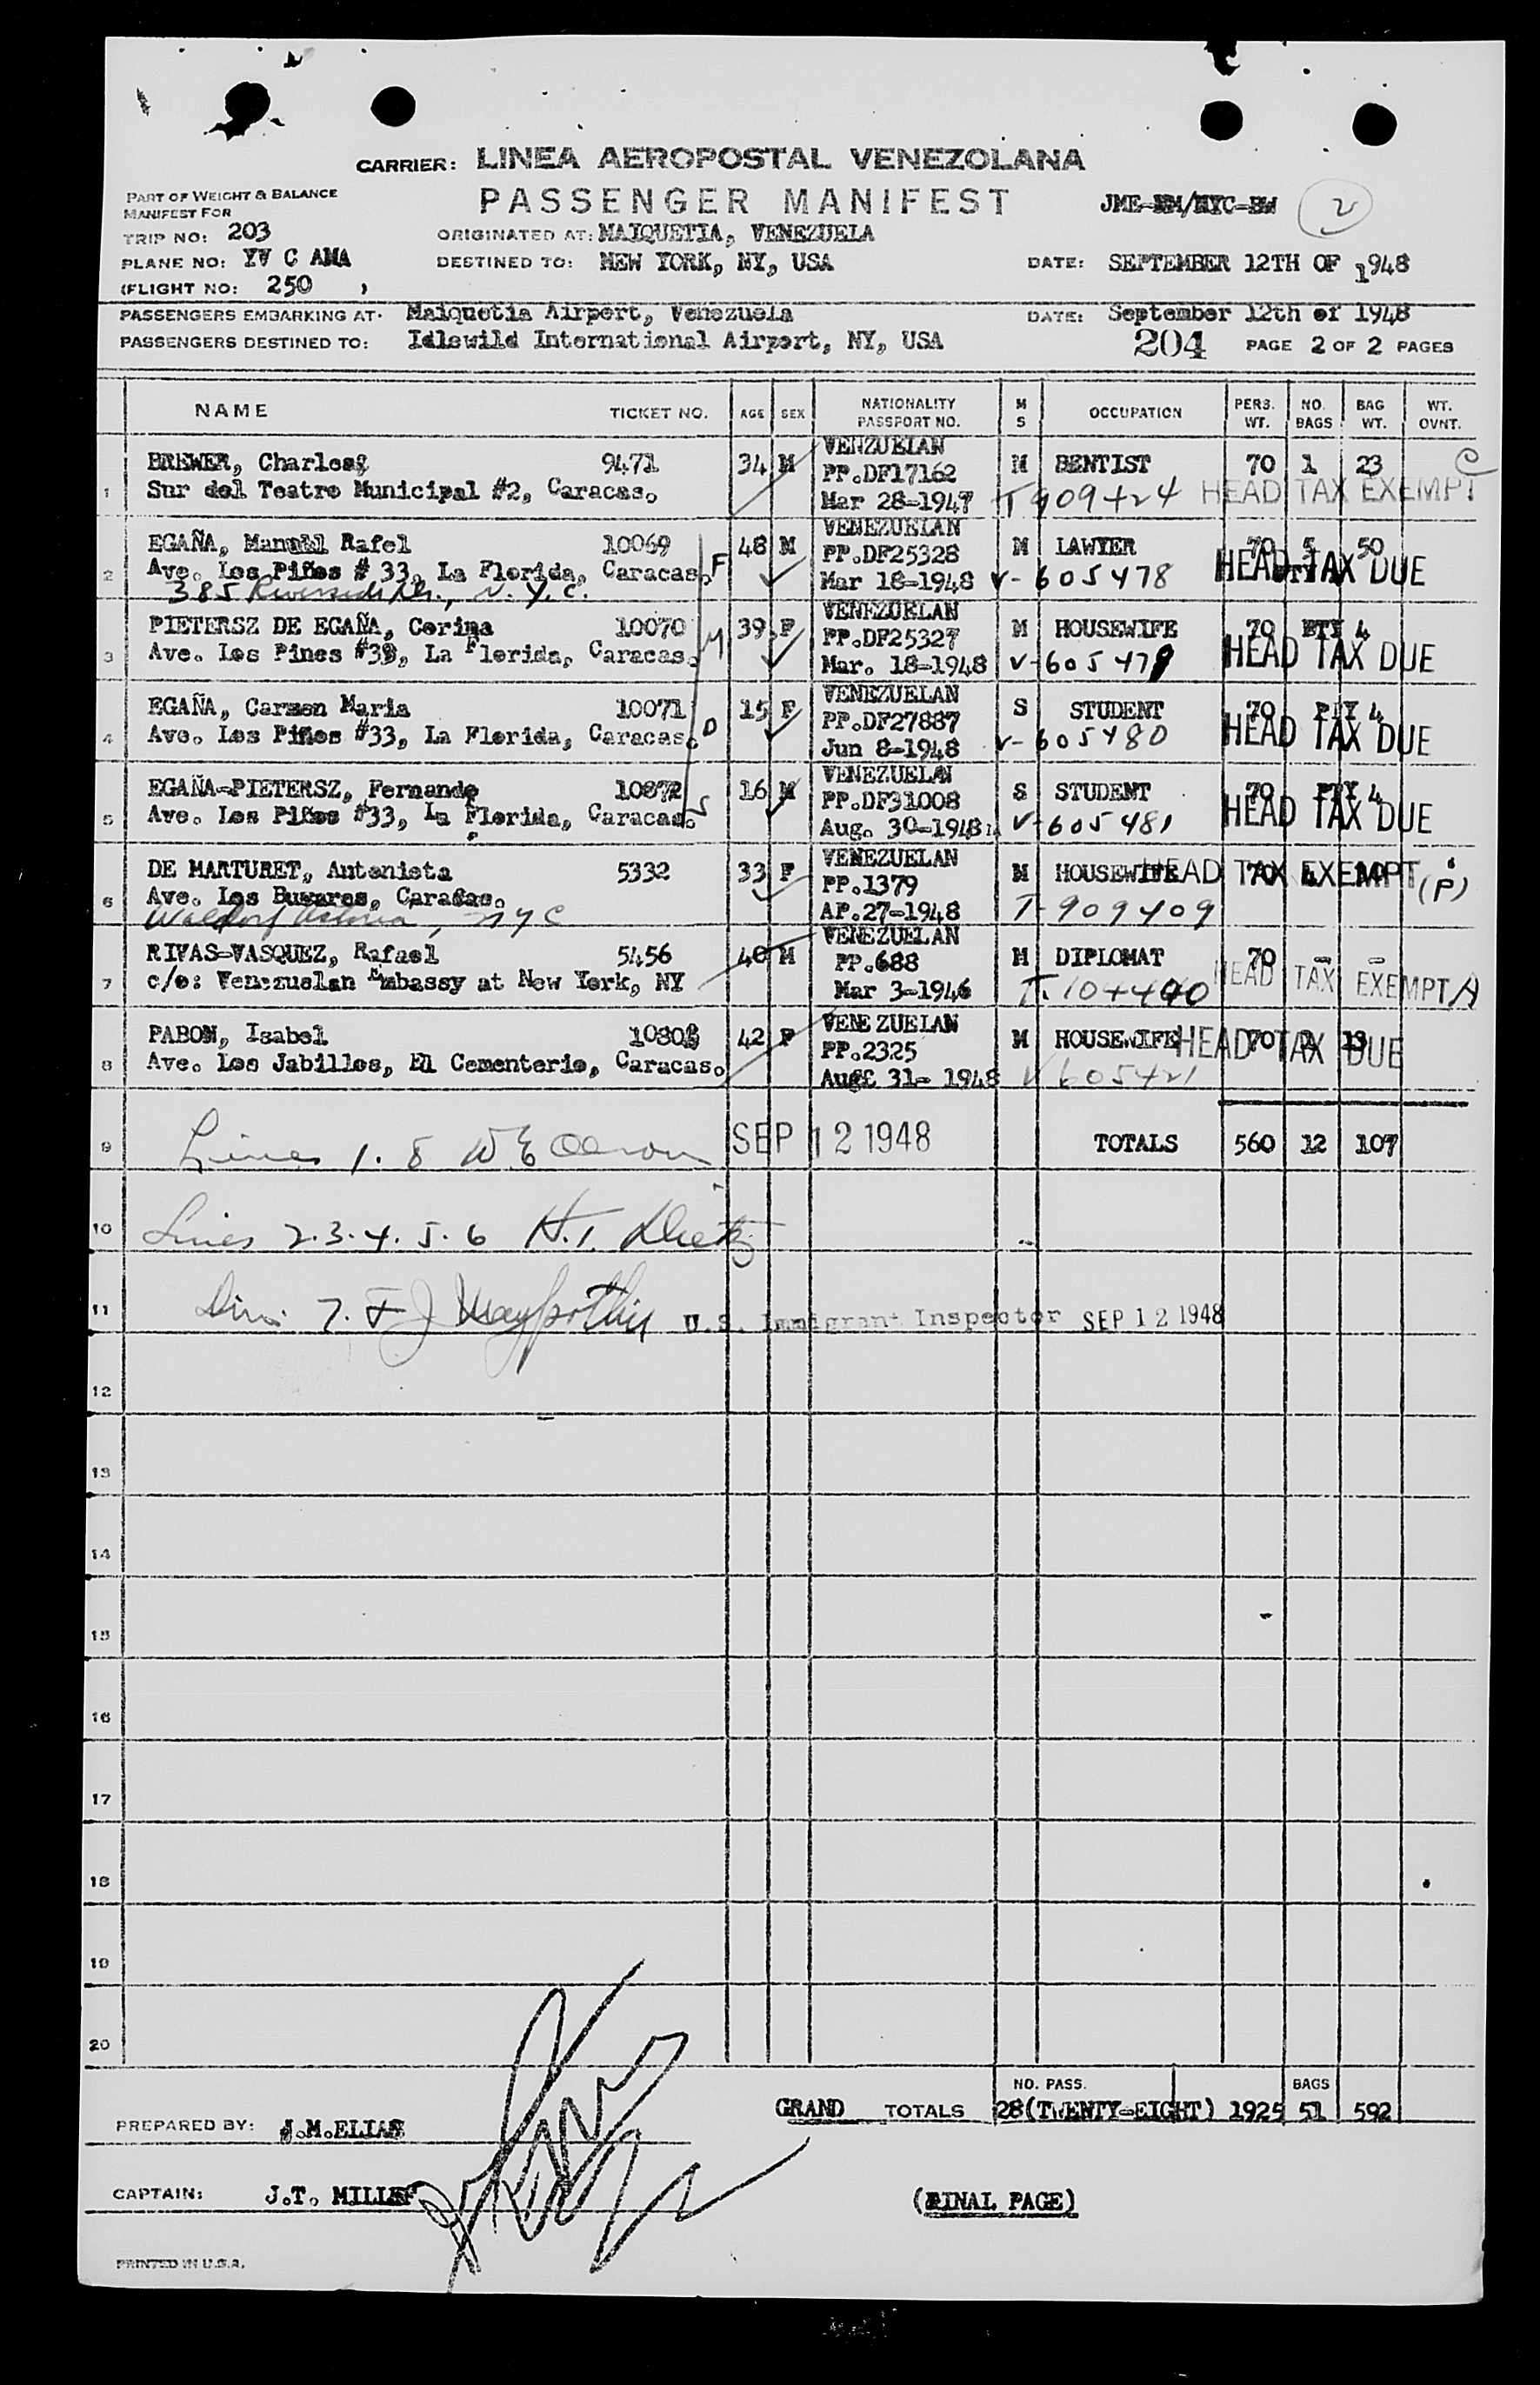 CARRIER: LINEA AEROPOSTAL VENEZOLANA
PASSENGER MANIFEST
PART OF WEIGHT & BALANCE
MANIFEST FOR
JME-NM/NYC-BW 2
TRIP NO: 203 ORIGINATED AT: MAIQUETIA, VENEZUELA
PLANE NO: YV C AMA DESTINED TO: NEW YORK, NY, USA DATE: SEPTEMBER 12TH OF 1948
(FLIGHT NO: 250 )
PASSENGERS EMBARKING AT: Maiquetia Airport, Venezuela DATE: September 12th of 1948
PASSENGERS DESTINED TO: Idlewild International Airport, NY, USA 204 PAGE 2 OF 2 PAGES
NAME TICKET NO. AGE SEX NATIONALITY PASSPORT NO. M S OCCUPATION PERS. WT. NO. BAGS BAG WT. WT. OVNT.
VENZUELAN
BREWER, Charles 9471 34 M PP.DF17162 M DENTIST 70 1 23 C
1 Sur del Teatro Municipal #2, Caracas. Mar 28-1947 T 909424 HEAD TAX EXEMPT
VENEZUELAN
EGAÑA, Manuel Rafel 10069 48 M PP.DF25328 M LAWYER 70 5 50
2 Ave. Los Piños # 33, La Florida, Caracas. F Mar 18-1948 V-605478 HEAD TAX DUE
385 Riverside Dr., N.Y.C.
VENEZUELAN
PIETERSZ DE EGAÑA, Corina 10070 39 F PP.DF25327 M HOUSEWIFE 70 PTY 4
3 Ave. Los Pinos #33, La Florida, Caracas. M Mar. 18-1948 V-605479 HEAD TAX DUE
VENEZUELAN
EGAÑA, Carmen Maria 10071 15 F PP.DF27887 S STUDENT 70 PTY 4
4 Ave. Los Piños #33, La Florida, Caracas. D Jun 8-1948 V-605480 HEAD TAX DUE
VENEZUELAN
EGAÑA-PIETERSZ, Fernando 10872 16 M PP.DF31008 S STUDENT 70 PTY 4
5 Ave. Los Piños #33, La Florida, Caracas. S Aug. 30-1948 V-605481 HEAD TAX DUE
VENEZUELAN
DE MARTURET, Antonieta 5332 33 F PP.1379 M HOUSEWIFE 70 HEAD TAX EXEMPT (P)
6 Ave. Los Bucares, Caracas. AP.27-1948 T-909409
Waldorf Astoria, NYC
VENEZUELAN
RIVAS-VASQUEZ, Rafael 5456 40 M PP.688 M DIPLOMAT 70 - -
7 c/o: Venezuelan Embassy at New York, NY Mar 3-1946 T-104440 HEAD TAX EXEMPT A
VENEZUELAN
PABON, Isabel 10808 42 F PP.2325 M HOUSEWIFE 70 HEAD TAX DUE
8 Ave. Los Jabillos, El Cementerio, Caracas. Aug 31- 1948 V 605421
9 Lines 1. 8 SEP 12 1948 TOTALS 560 12 107
10 Lines 2.3.4.5.6
11 7. U.S. Immigrant Inspector SEP 12 1948
12
13
14
15
16
17
18
19
20
NO. PASS. BAGS
GRAND TOTALS 28(TWENTY-EIGHT) 1925 51 592
PREPARED BY: J.M.ELIAS
CAPTAIN: J.T. MILLER
(FINAL PAGE)
PRINTED IN U.S.A.